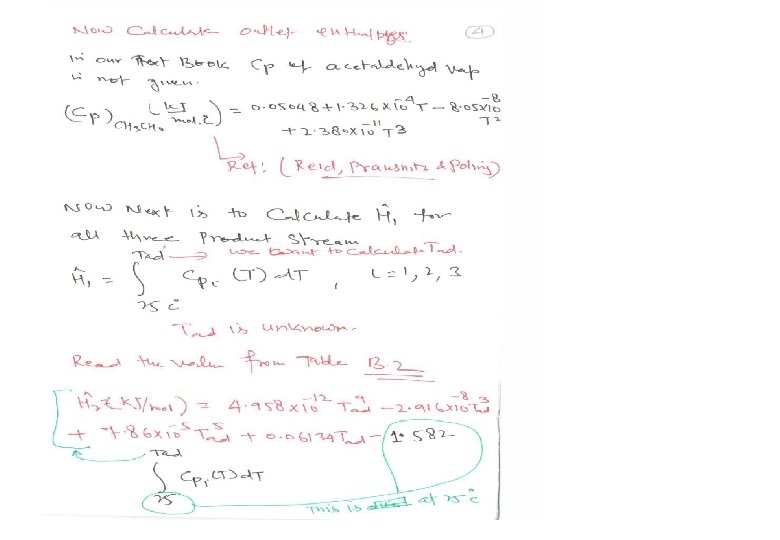 Now Calculate outlet enthalpies. 4
In our Text Book Cp of acetaldehyd vap
is not given.
(Cp)CH3CHO (kJ/mol.°C) = 0.05048 + 1.326×10⁻⁴T − 8.05×10⁻⁸T²
+ 2.380×10⁻¹¹T3
Ref: (Reid, Prausnitz & Poling)
Now Next is to Calculate Ĥ₁ for
all three Product Stream
Tad → we want to calculate Tad.
Ĥ₁ = ∫ Cpᵢ (T) dT , i = 1, 2, 3
25°C
Tad is unknown.
Read the value from Table B.2
Ĥ₂ (kJ/mol) = 4.958×10⁻¹² Tad⁴ − 2.916×10⁻⁸ Tad³
+ 7.86×10⁻⁵ Tad⁵ + 0.06134 Tad − 1.582
Tad
∫ Cpᵢ(T)dT
25
This is at 25°C